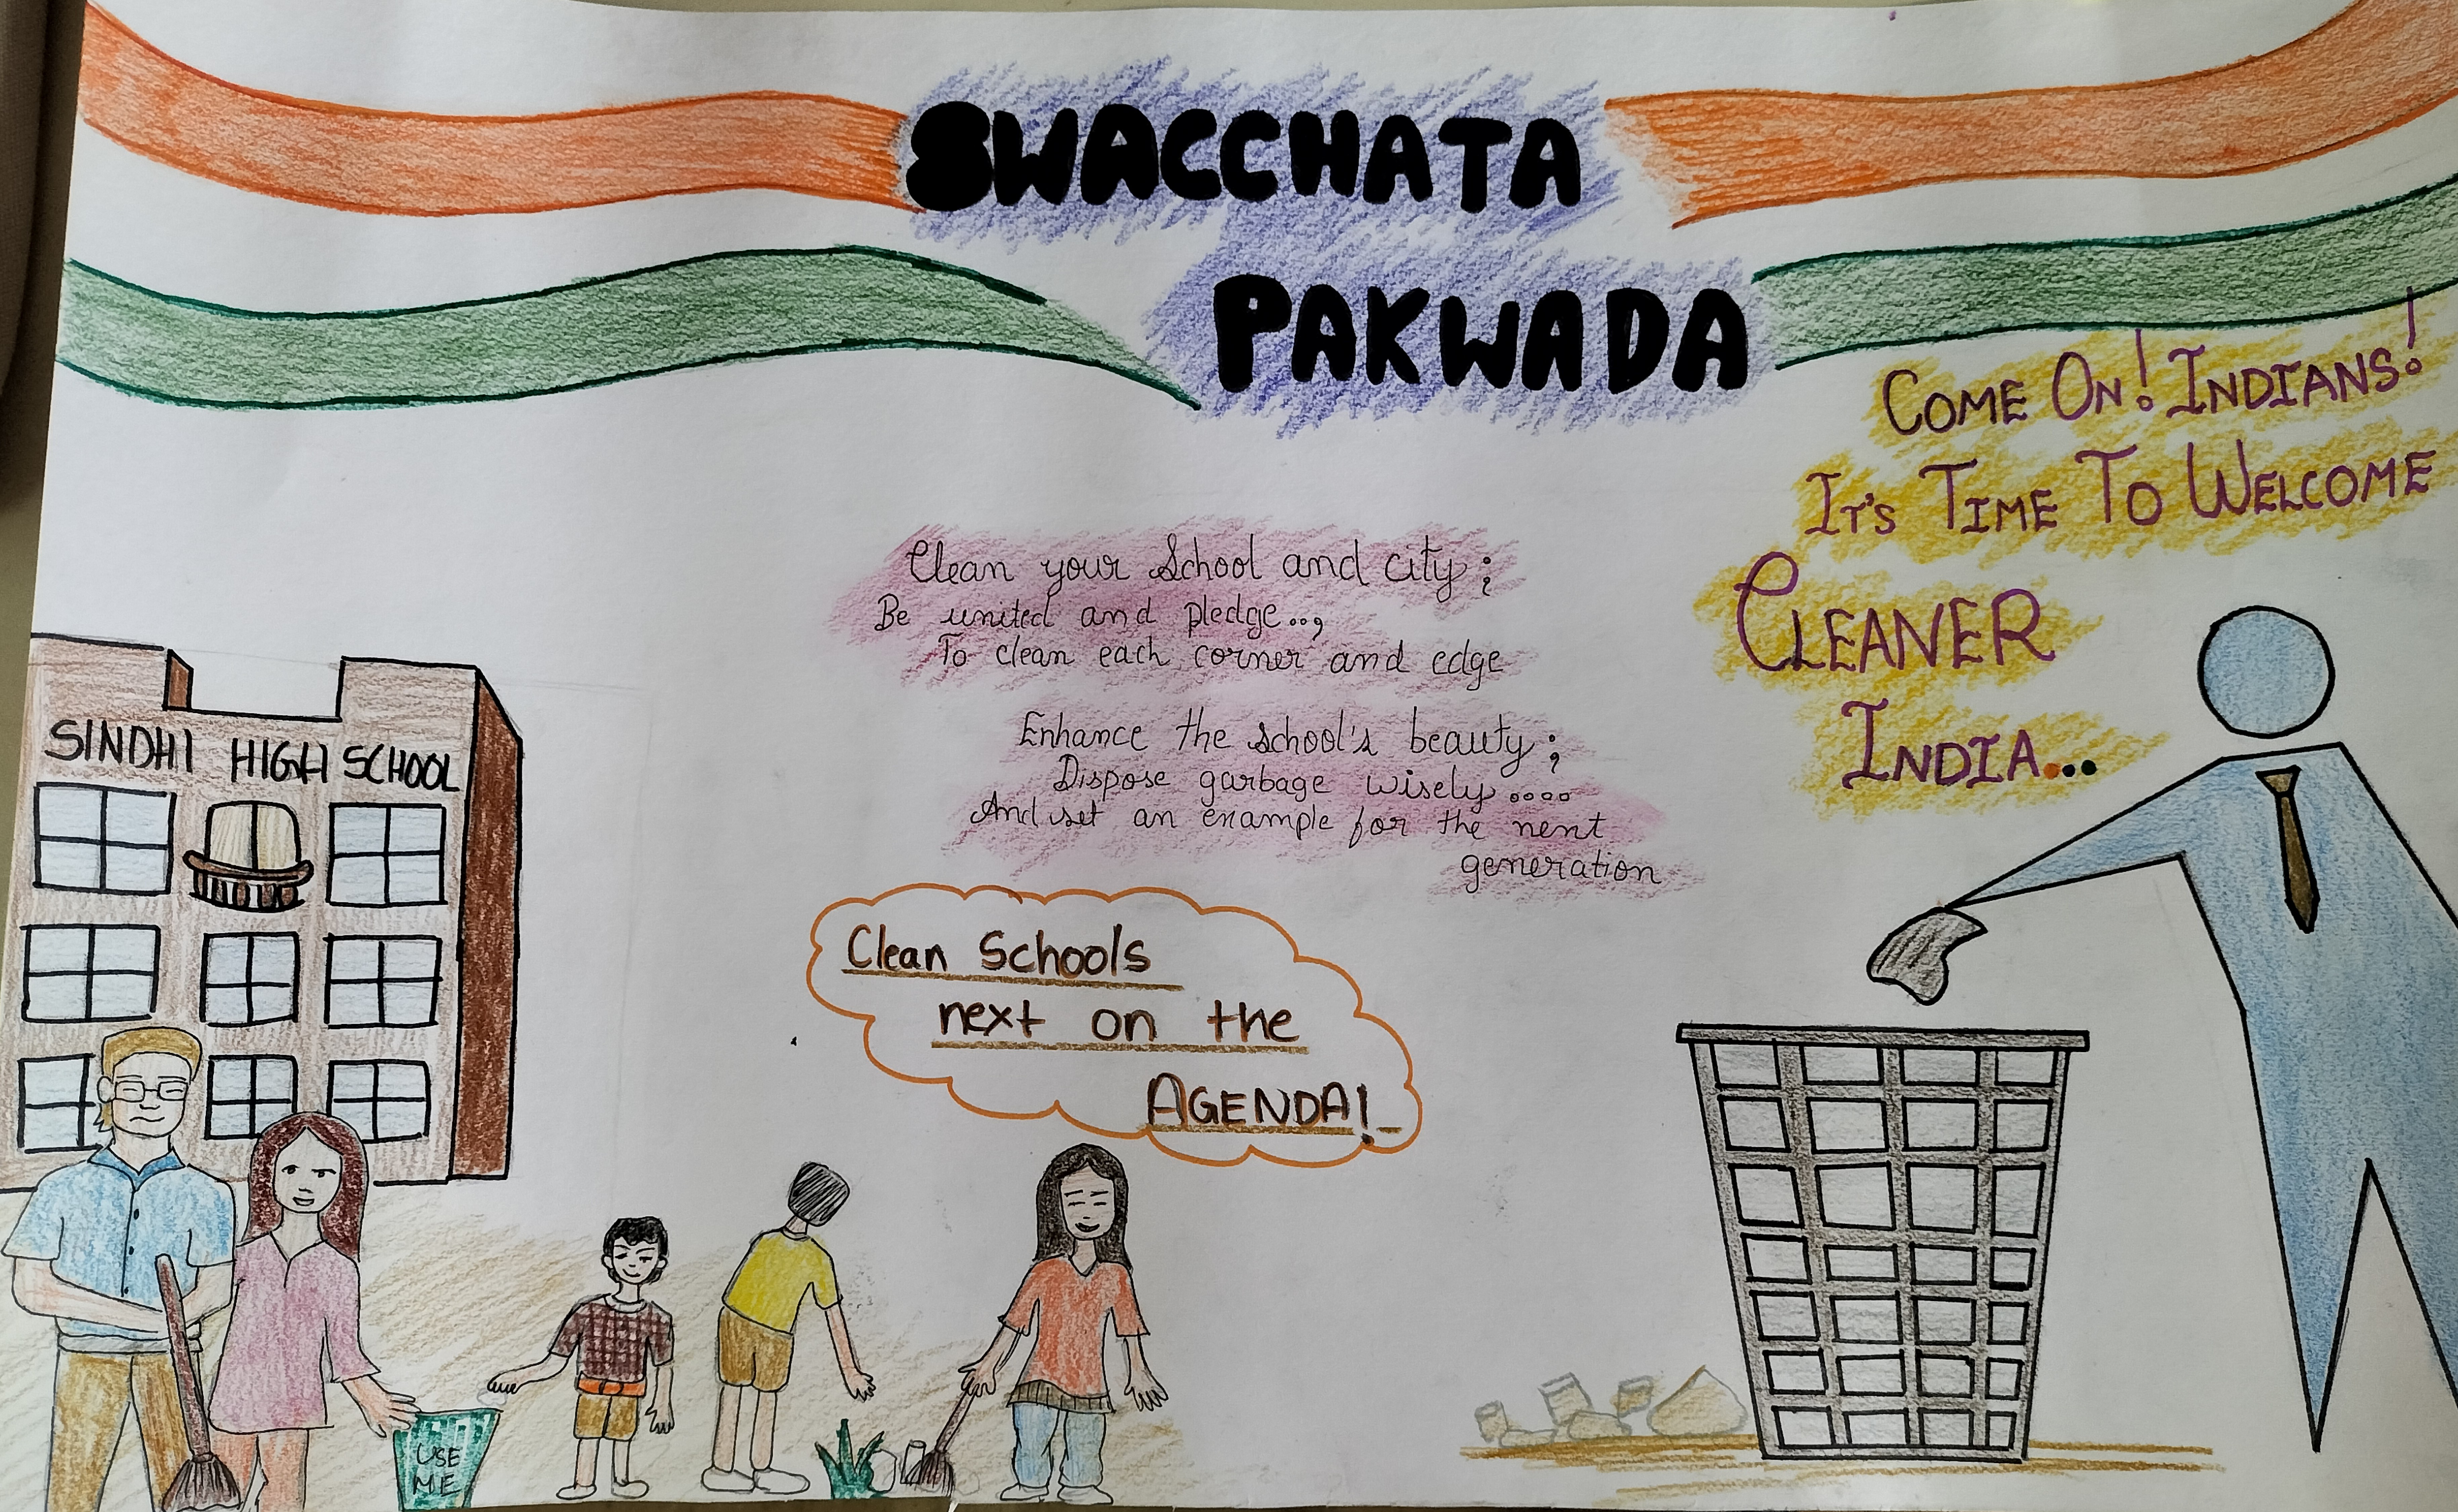 SWACCHATA
PAKWADA
COME ON! INDIANS!
IT'S TIME TO WELCOME
CLEANER
INDIA...
Clean your School and city;
Be united and pledge..,
To clean each corner and edge
Enhance the school's beauty;
Dispose garbage wisely....
And set an example for the next
generation
Clean Schools
next on the
AGENDA!
SINDHI HIGH SCHOOL
USE
ME